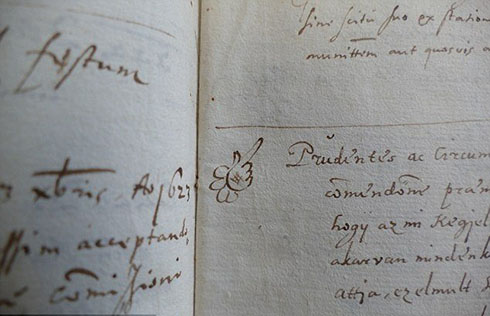 festum
xbris Ao 1623
ssim acceptandi
comissioni
sini scitu suo ex station
munittem aut quosvis a
Prudentes ac Circum
comendone praem
hogÿ az mi Kegjel
akarvan mindenk
attia, ez elmult